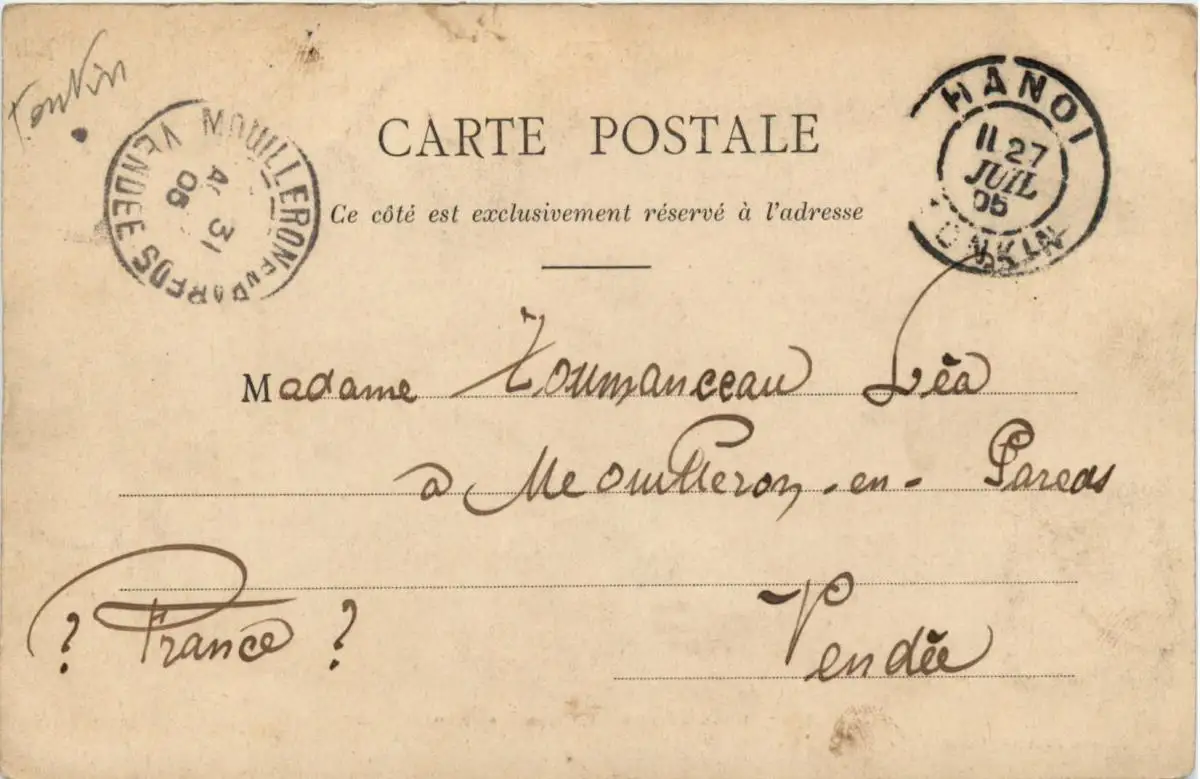 Tonkin
CARTE POSTALE
Ce côté est exclusivement réservé à l'adresse
MOUILLERON EN PAREDS VENDEE
31
05
HANOI
27
JUIL
05
TONKIN
Madame Léa
à Mouilleron-en-Pareds
? France ?
Vendée